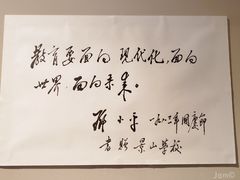 教育要面向现代化，面向
世界，面向未来。
邓小平 一九八三年国庆节
书赠景山学校